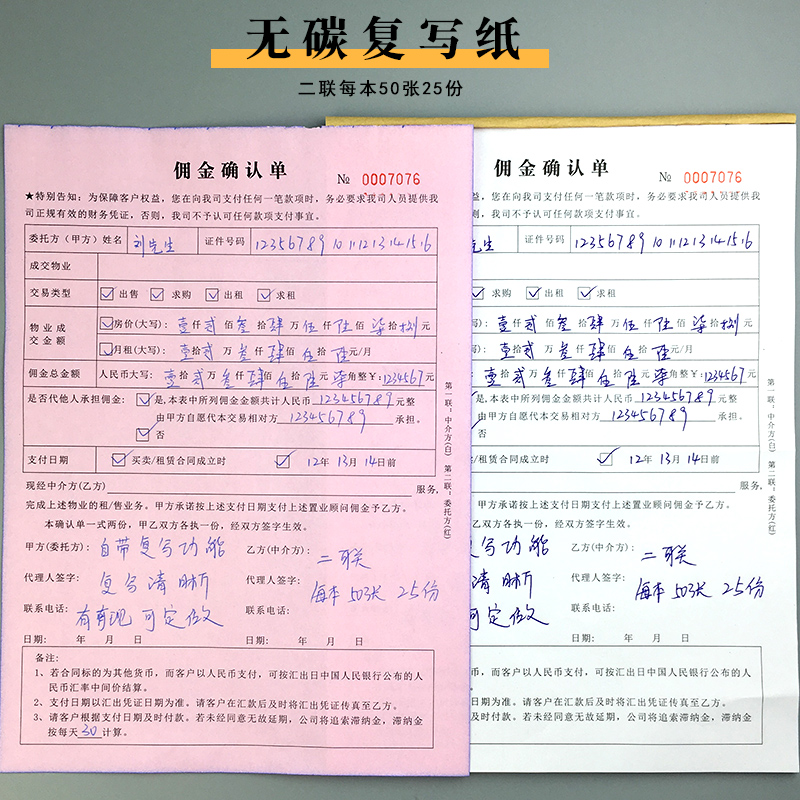 无碳复写纸
二联每本50张25份
佣金确认单
№ 0007076
★特别告知：为保障客户权益，您在向我司支付任何一笔款项时，务必要求我司人员提供我
司正规有效的财务凭证，否则，我司不予认可任何款项支付事宜。
委托方（甲方）姓名 刘先生 证件号码 12356789 10 11 12 13 14 15 16
成交物业
交易类型 出售 求购 出租 求租
物业成交金额
房价(大写)：壹仟贰佰叁拾肆万伍仟陆佰柒拾捌元
月租(大写)：壹拾贰万叁仟肆佰伍拾陆元/月
佣金总金额 人民币大写：壹贰叁肆伍陆柒角整￥:1234567元
是否代他人承担佣金： 是,本表中所列佣金金额共计人民币 123456789 元整
由甲方自愿代本交易相对方 123456789 承担。
否
支付日期 买卖/租赁合同成立时 12年 13月 14日前
现经中介方(乙方) 服务,
完成上述物业的租/售业务。甲方承诺按上述支付日期支付上述置业顾问佣金予乙方。
本确认单一式两份，甲乙双方各执一份，经双方签字生效。
甲方(委托方)： 自带复写功能 乙方(中介方)： 二联
代理人签字： 复写清晰 代理人签字： 每本 50张 25份
联系电话： 有有现 可定做 联系电话：
日期： 年 月 日 日期： 年 月 日
备注：
1、若合同标的为其他货币，而客户以人民币支付，可按汇出日中国人民银行公布的人
民币汇率中间价结算。
2、支付日期以汇出凭证日期为准。请客户在汇款后及时将汇出凭证传真至乙方。
3、请客户根据支付日期及时付款。若未经同意无故延期，公司将追索滞纳金，滞纳金
按每天 30 计算。
第一联：中介方(白) 第二联：委托方(红)
佣金确认单
№ 0007076
益，您在向我司支付任何一笔款项时，务必要求我司人员提供我
证，否则，我司不予认可任何款项支付事宜。
生 证件号码 12356789 10 11 12 13 14 15 16
求购 出租 求租
)：壹仟贰佰叁拾肆万伍仟陆佰柒拾捌元
)：壹拾贰万叁仟肆佰伍拾陆元/月
写：壹贰叁肆伍陆柒角整￥:1234567元
是,本表中所列佣金金额共计人民币 123456789 元整
由甲方自愿代本交易相对方 123456789 承担。
否
卖/租赁合同成立时 12年 13月 14日前
服务,
售业务。甲方承诺按上述支付日期支付上述置业顾问佣金予乙方。
份，甲乙双方各执一份，经双方签字生效。
复写功能 乙方(中介方)： 二联
清晰 代理人签字： 每本 50张 25份
可定做 联系电话：
月 日 日期： 年 月 日
币，而客户以人民币支付，可按汇出日中国人民银行公布的人
算。
证日期为准。请客户在汇款后及时将汇出凭证传真至乙方。
日期及时付款。若未经同意无故延期，公司将追索滞纳金，滞纳金
算。
第一联：中介方(白) 第二联：委托方(红)